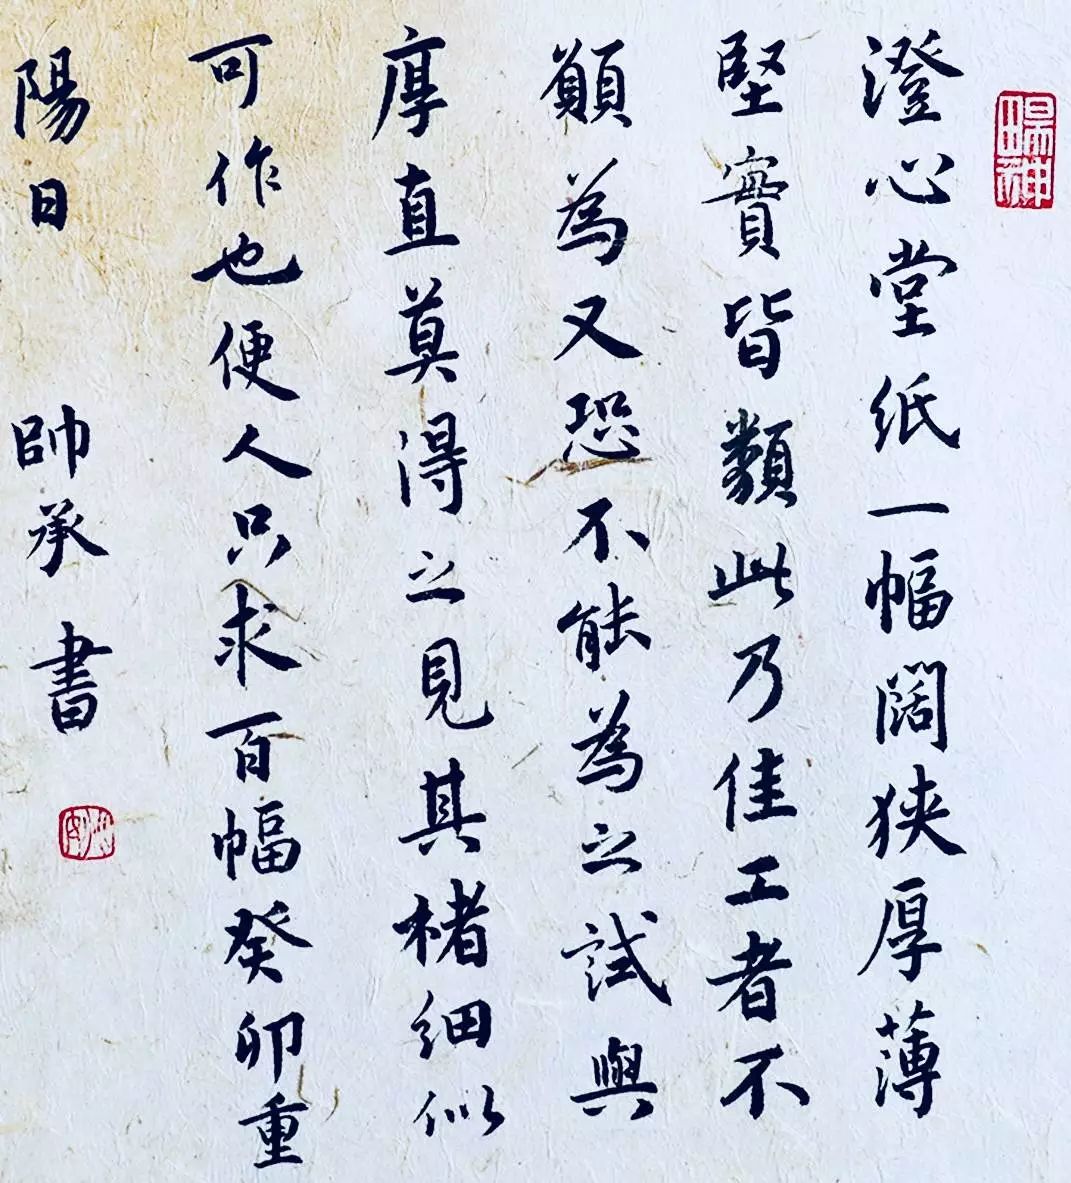 澄心堂紙一幅闊狹厚薄
堅實皆類此乃佳工者不
願為又恐不能為之試與
厚直莫得之見其楮細似
可作也便人只求百幅癸卯重
陽日 帥承書